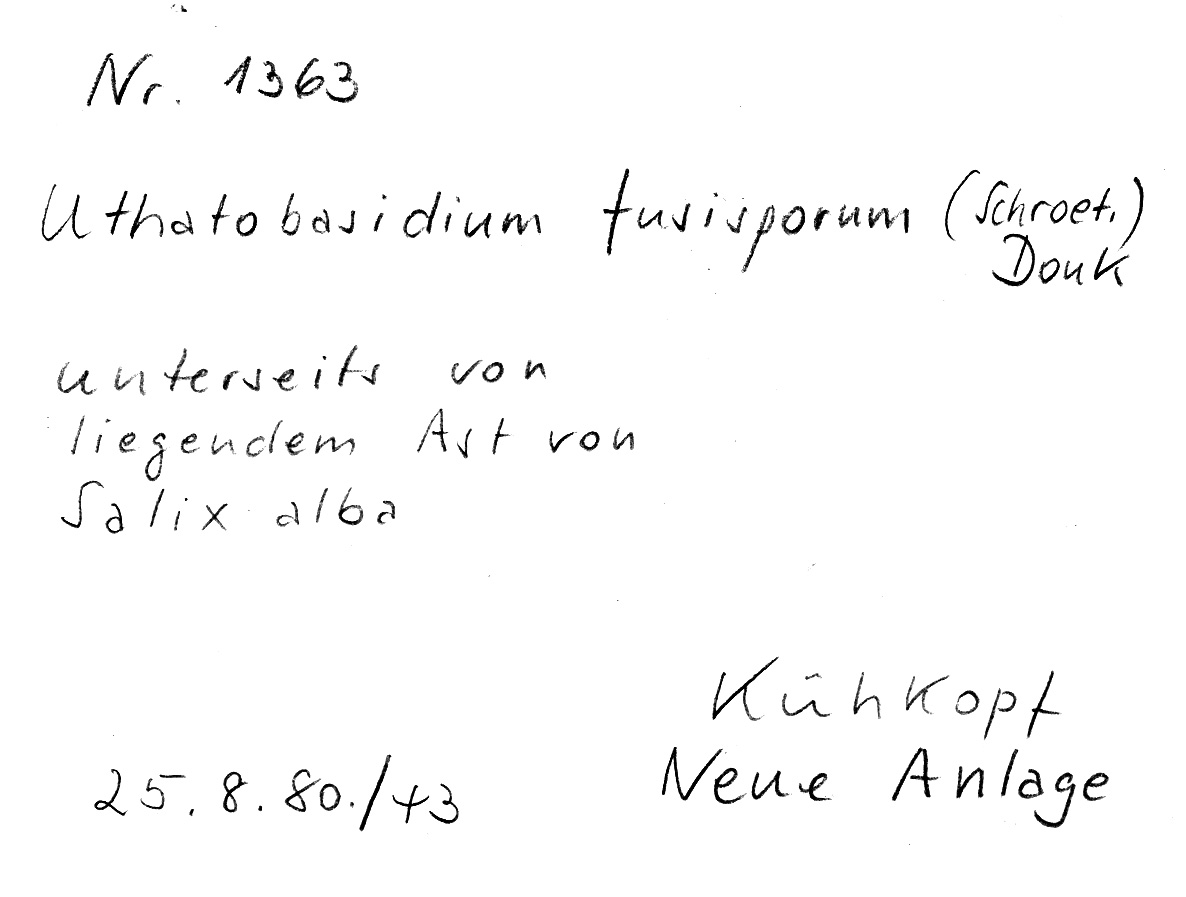 Nr. 1363
Uthatobasidium fusisporum (Schroet.)
Donk
unterseits von
liegendem Ast von
Salix alba
Kühkopf
Neue Anlage
25.8.80./43